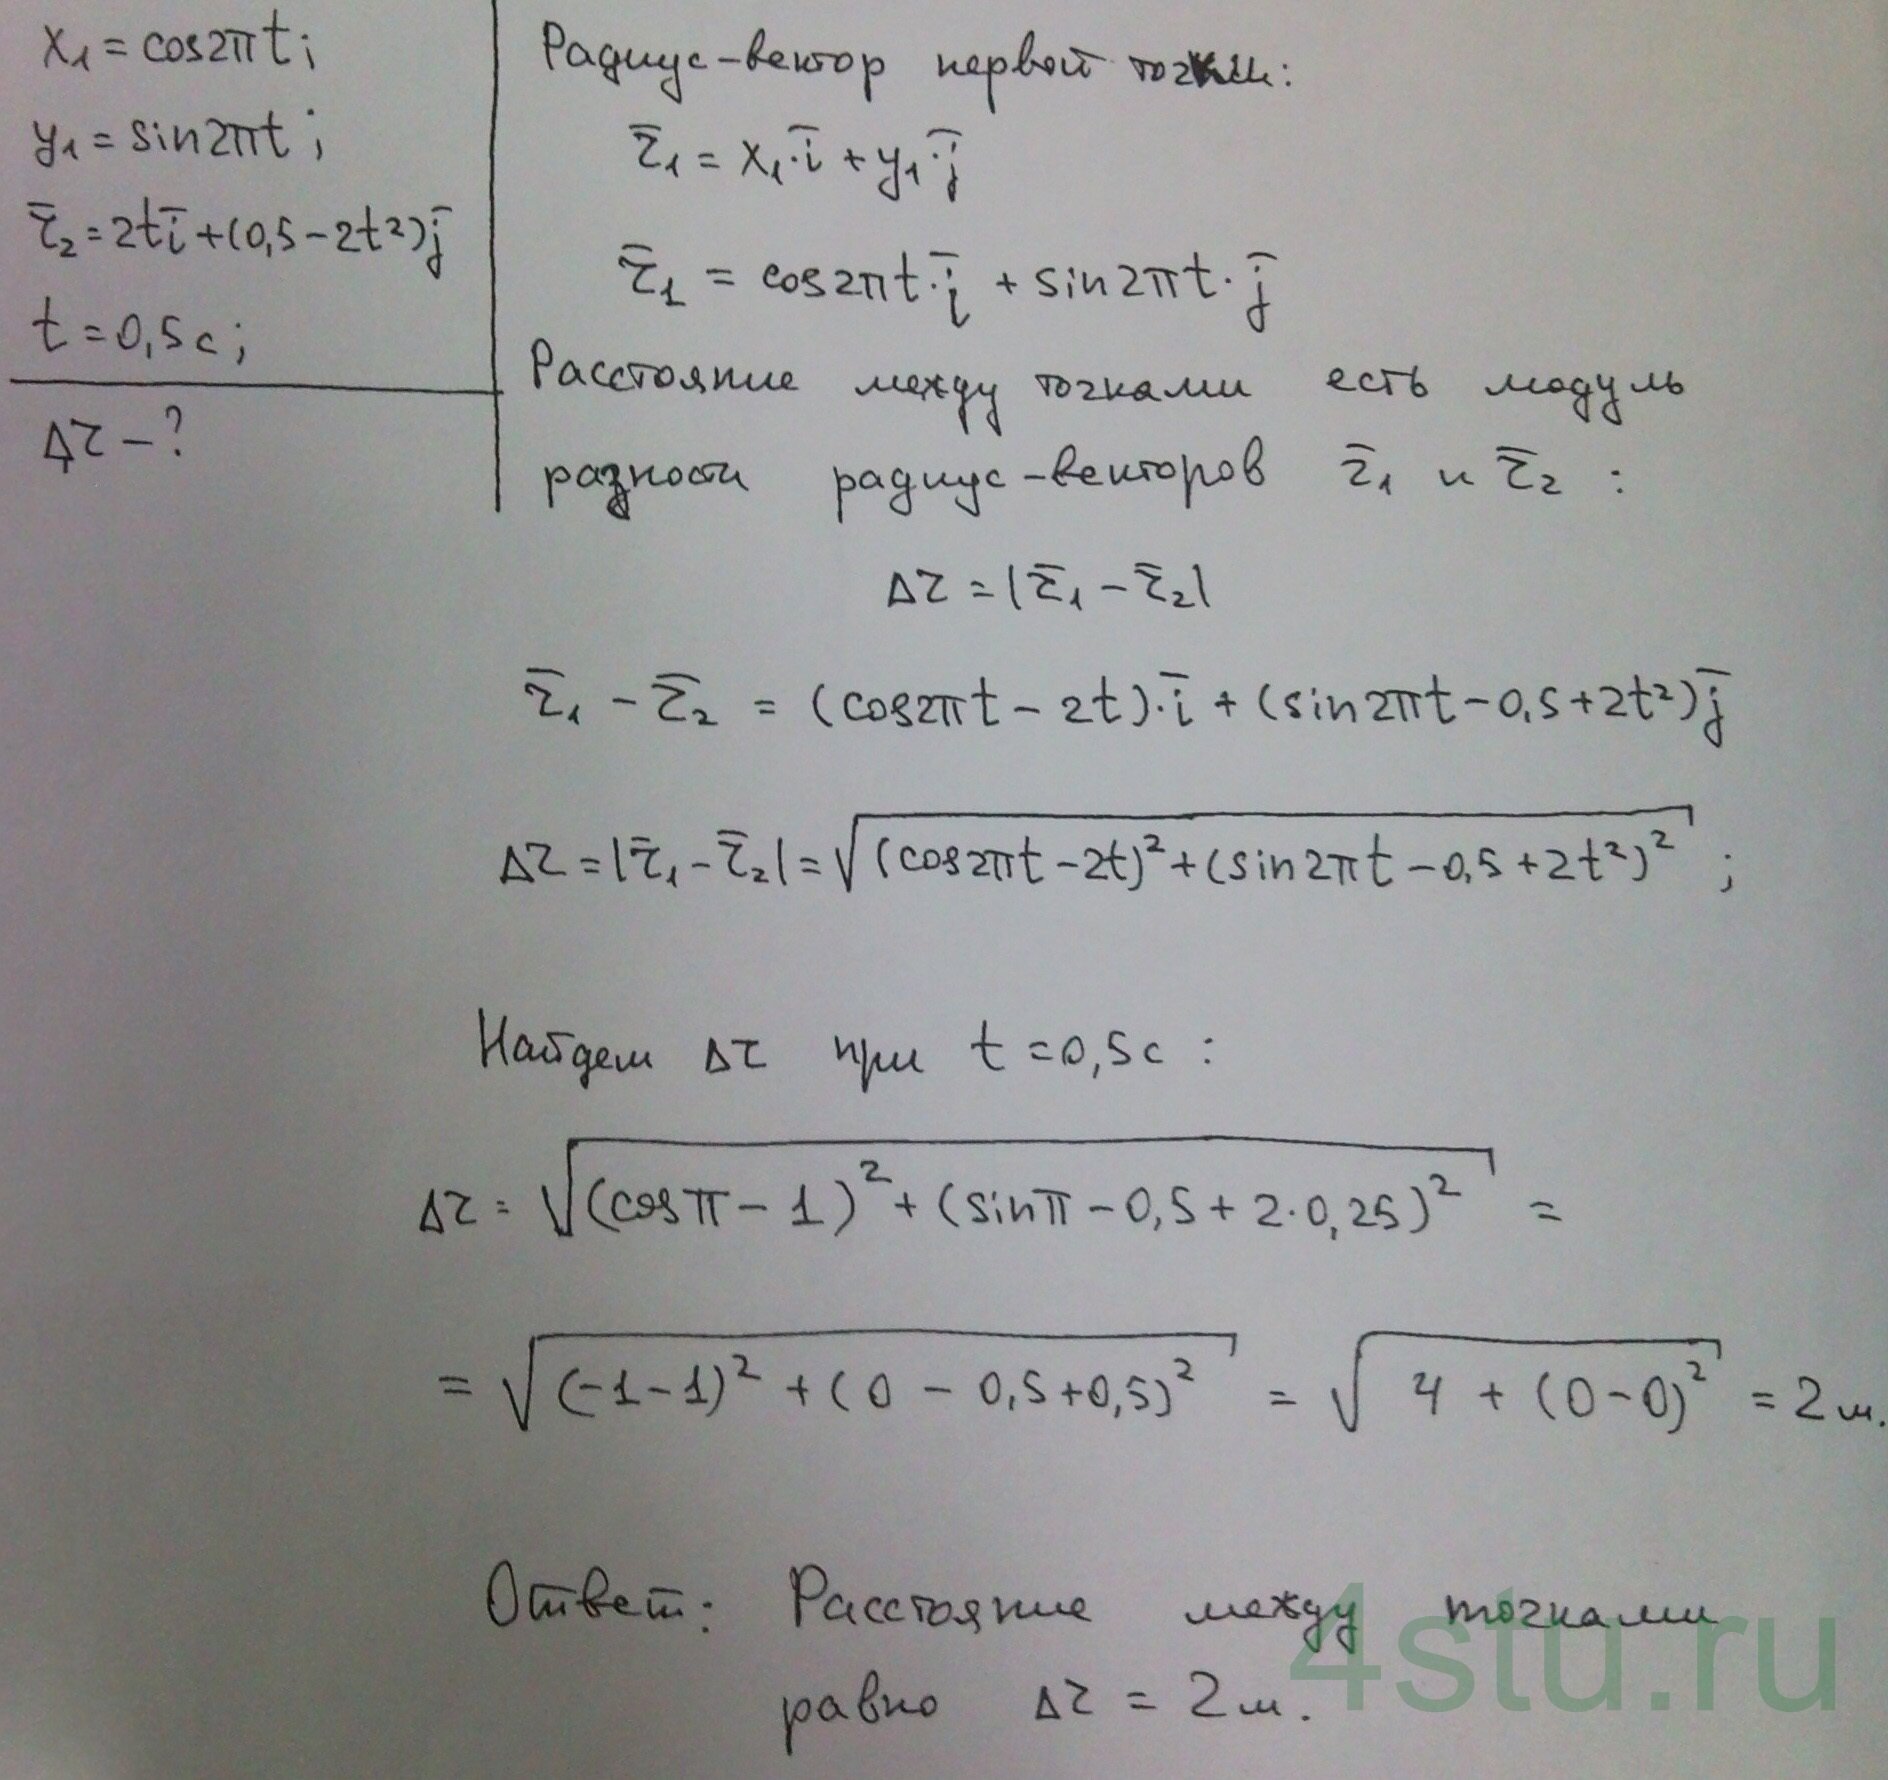 x₁ = cos2πt;
y₁ = sin2πt;
r̄₂ = 2tī + (0,5 − 2t²)j̄
t = 0,5с;
Δr − ?
Радиус-вектор первой точки:
r̄₁ = x₁·ī + y₁·j̄
r̄₁ = cos2πt·ī + sin2πt·j̄
Расстояние между точками есть модуль
разности радиус-векторов r̄₁ и r̄₂ :
Δr = |r̄₁ − r̄₂|
r̄₁ − r̄₂ = (cos2πt − 2t)·ī + (sin2πt − 0,5 + 2t²)j̄
Δr = |r̄₁ − r̄₂| = √((cos2πt − 2t)² + (sin2πt − 0,5 + 2t²)²) ;
Найдем Δr при t = 0,5с :
Δr = √((cosπ − 1)² + (sinπ − 0,5 + 2·0,25)²) =
= √((−1−1)² + (0 − 0,5+0,5)²) = √(4 + (0−0)²) = 2м.
Ответ: Расстояние между точками
равно Δr = 2м.
4stu.ru